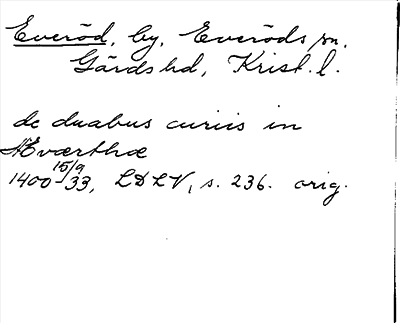 Everöd, by, Everöds sn.
Gärds hd, Krist. l.
de duabus curiis in
Æværthæ
15/9
1400-33, LDLV, s. 236. orig.